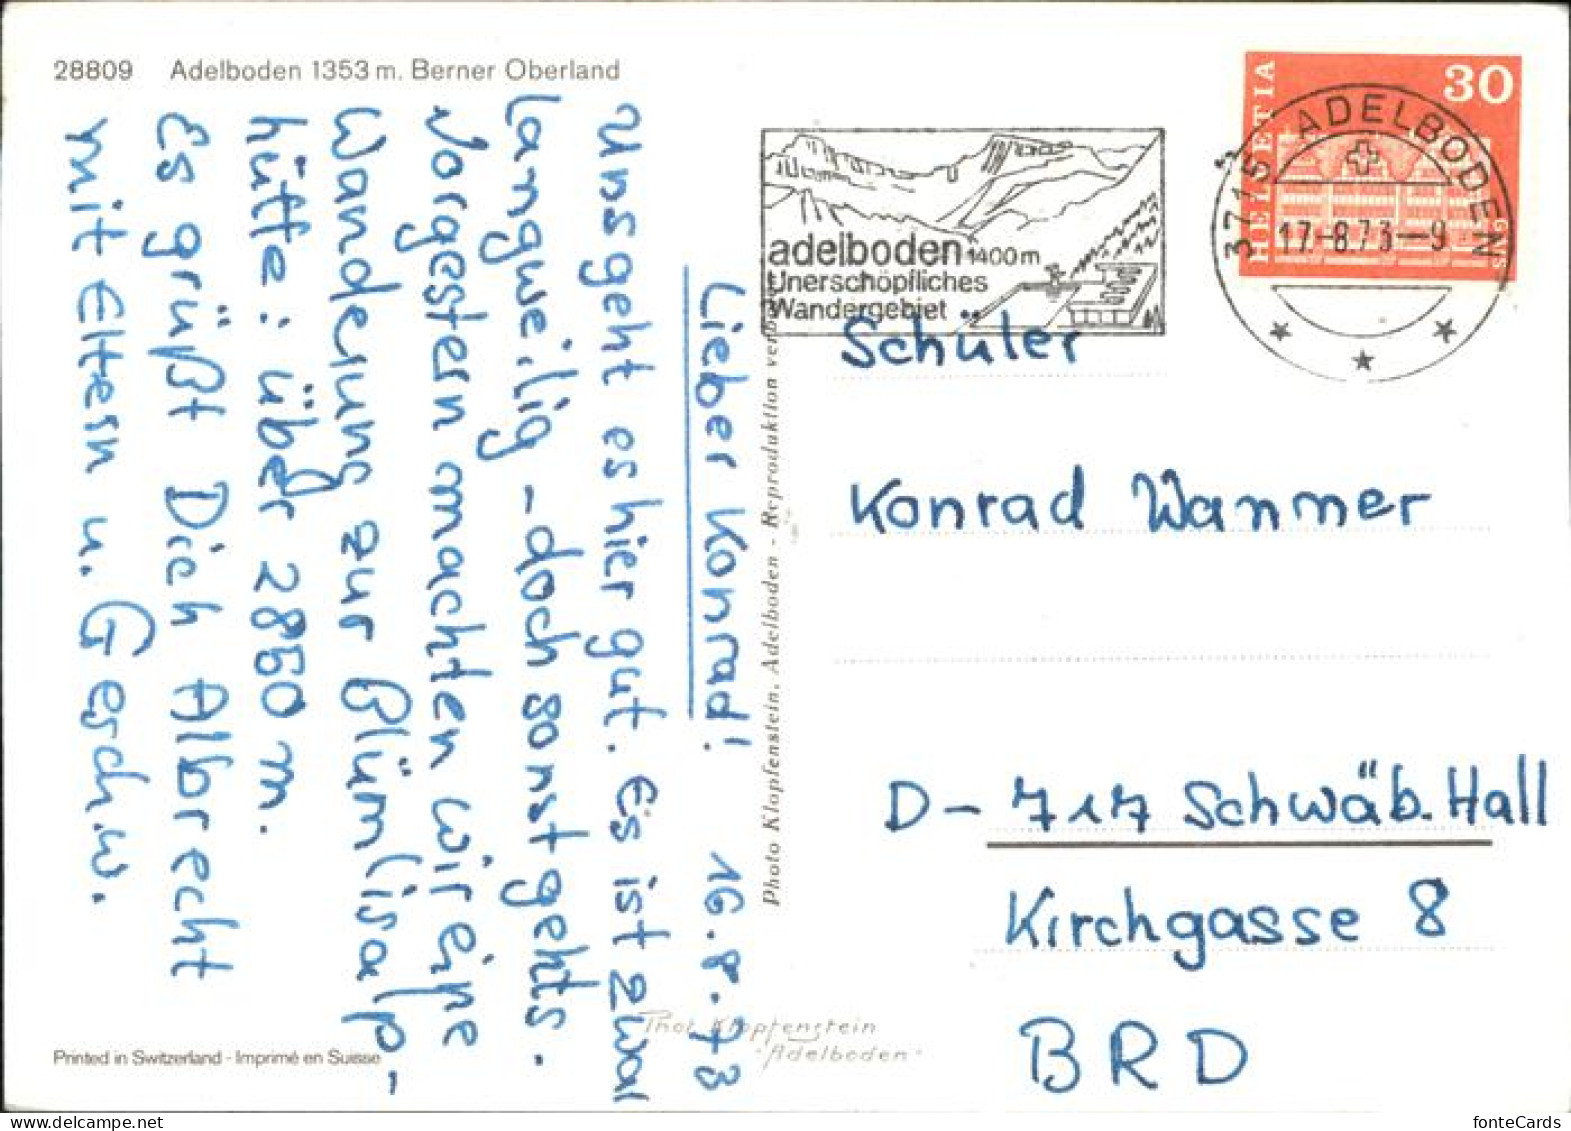 28809 Adelboden 1353 m. Berner Oberland
Lieber Konrad! 16.8.73
Uns geht es hier gut. Es ist zwar
langweilig - doch sonst gehts.
Vorgestern machten wir eine
Wanderung zur Blümlisalp-
hütte: über 2860 m.
Es grüßt Dich Albrecht
mit Eltern u. Geschw.
Printed in Switzerland - Imprimé en Suisse
Photo Klopfenstein, Adelboden - Reproduktion
Phot Klopfenstein
Adelboden
adelboden 1400 m
Unerschöpfliches
Wandergebiet
HELVETIA
30
3715 ADELBODEN
17.-8.73--9
Schüler
Konrad Wanner
D-717 Schwäb. Hall
Kirchgasse 8
BRD
fonteCards